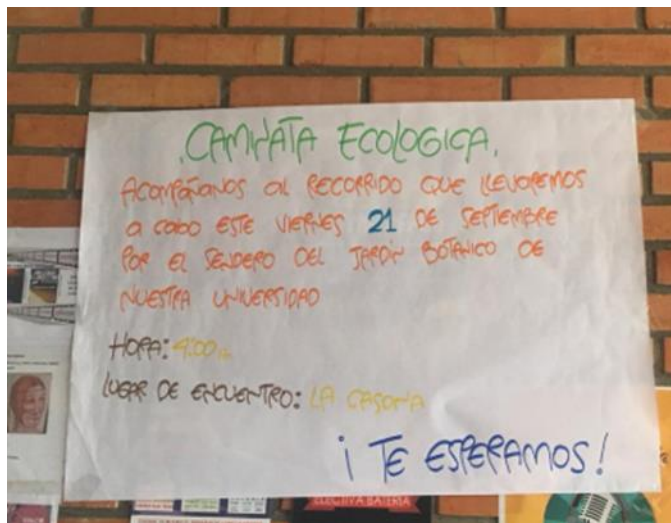 CAMINATA ECOLOGICA
ACOMPÁÑANOS al RECORRIDO QUE llevaremos
a cabo ESTE VIERNES 21 DE SEPTIEMBRE
POR EL SENDERO DEL JARDÍN BOTANICO DE
NUESTRA UNIVERSIDAD
HORA: 4:00
LUGAR DE ENCUENTRO: LA CASONA
¡ TE ESPERAMOS!
ELECTIVA BATERIA